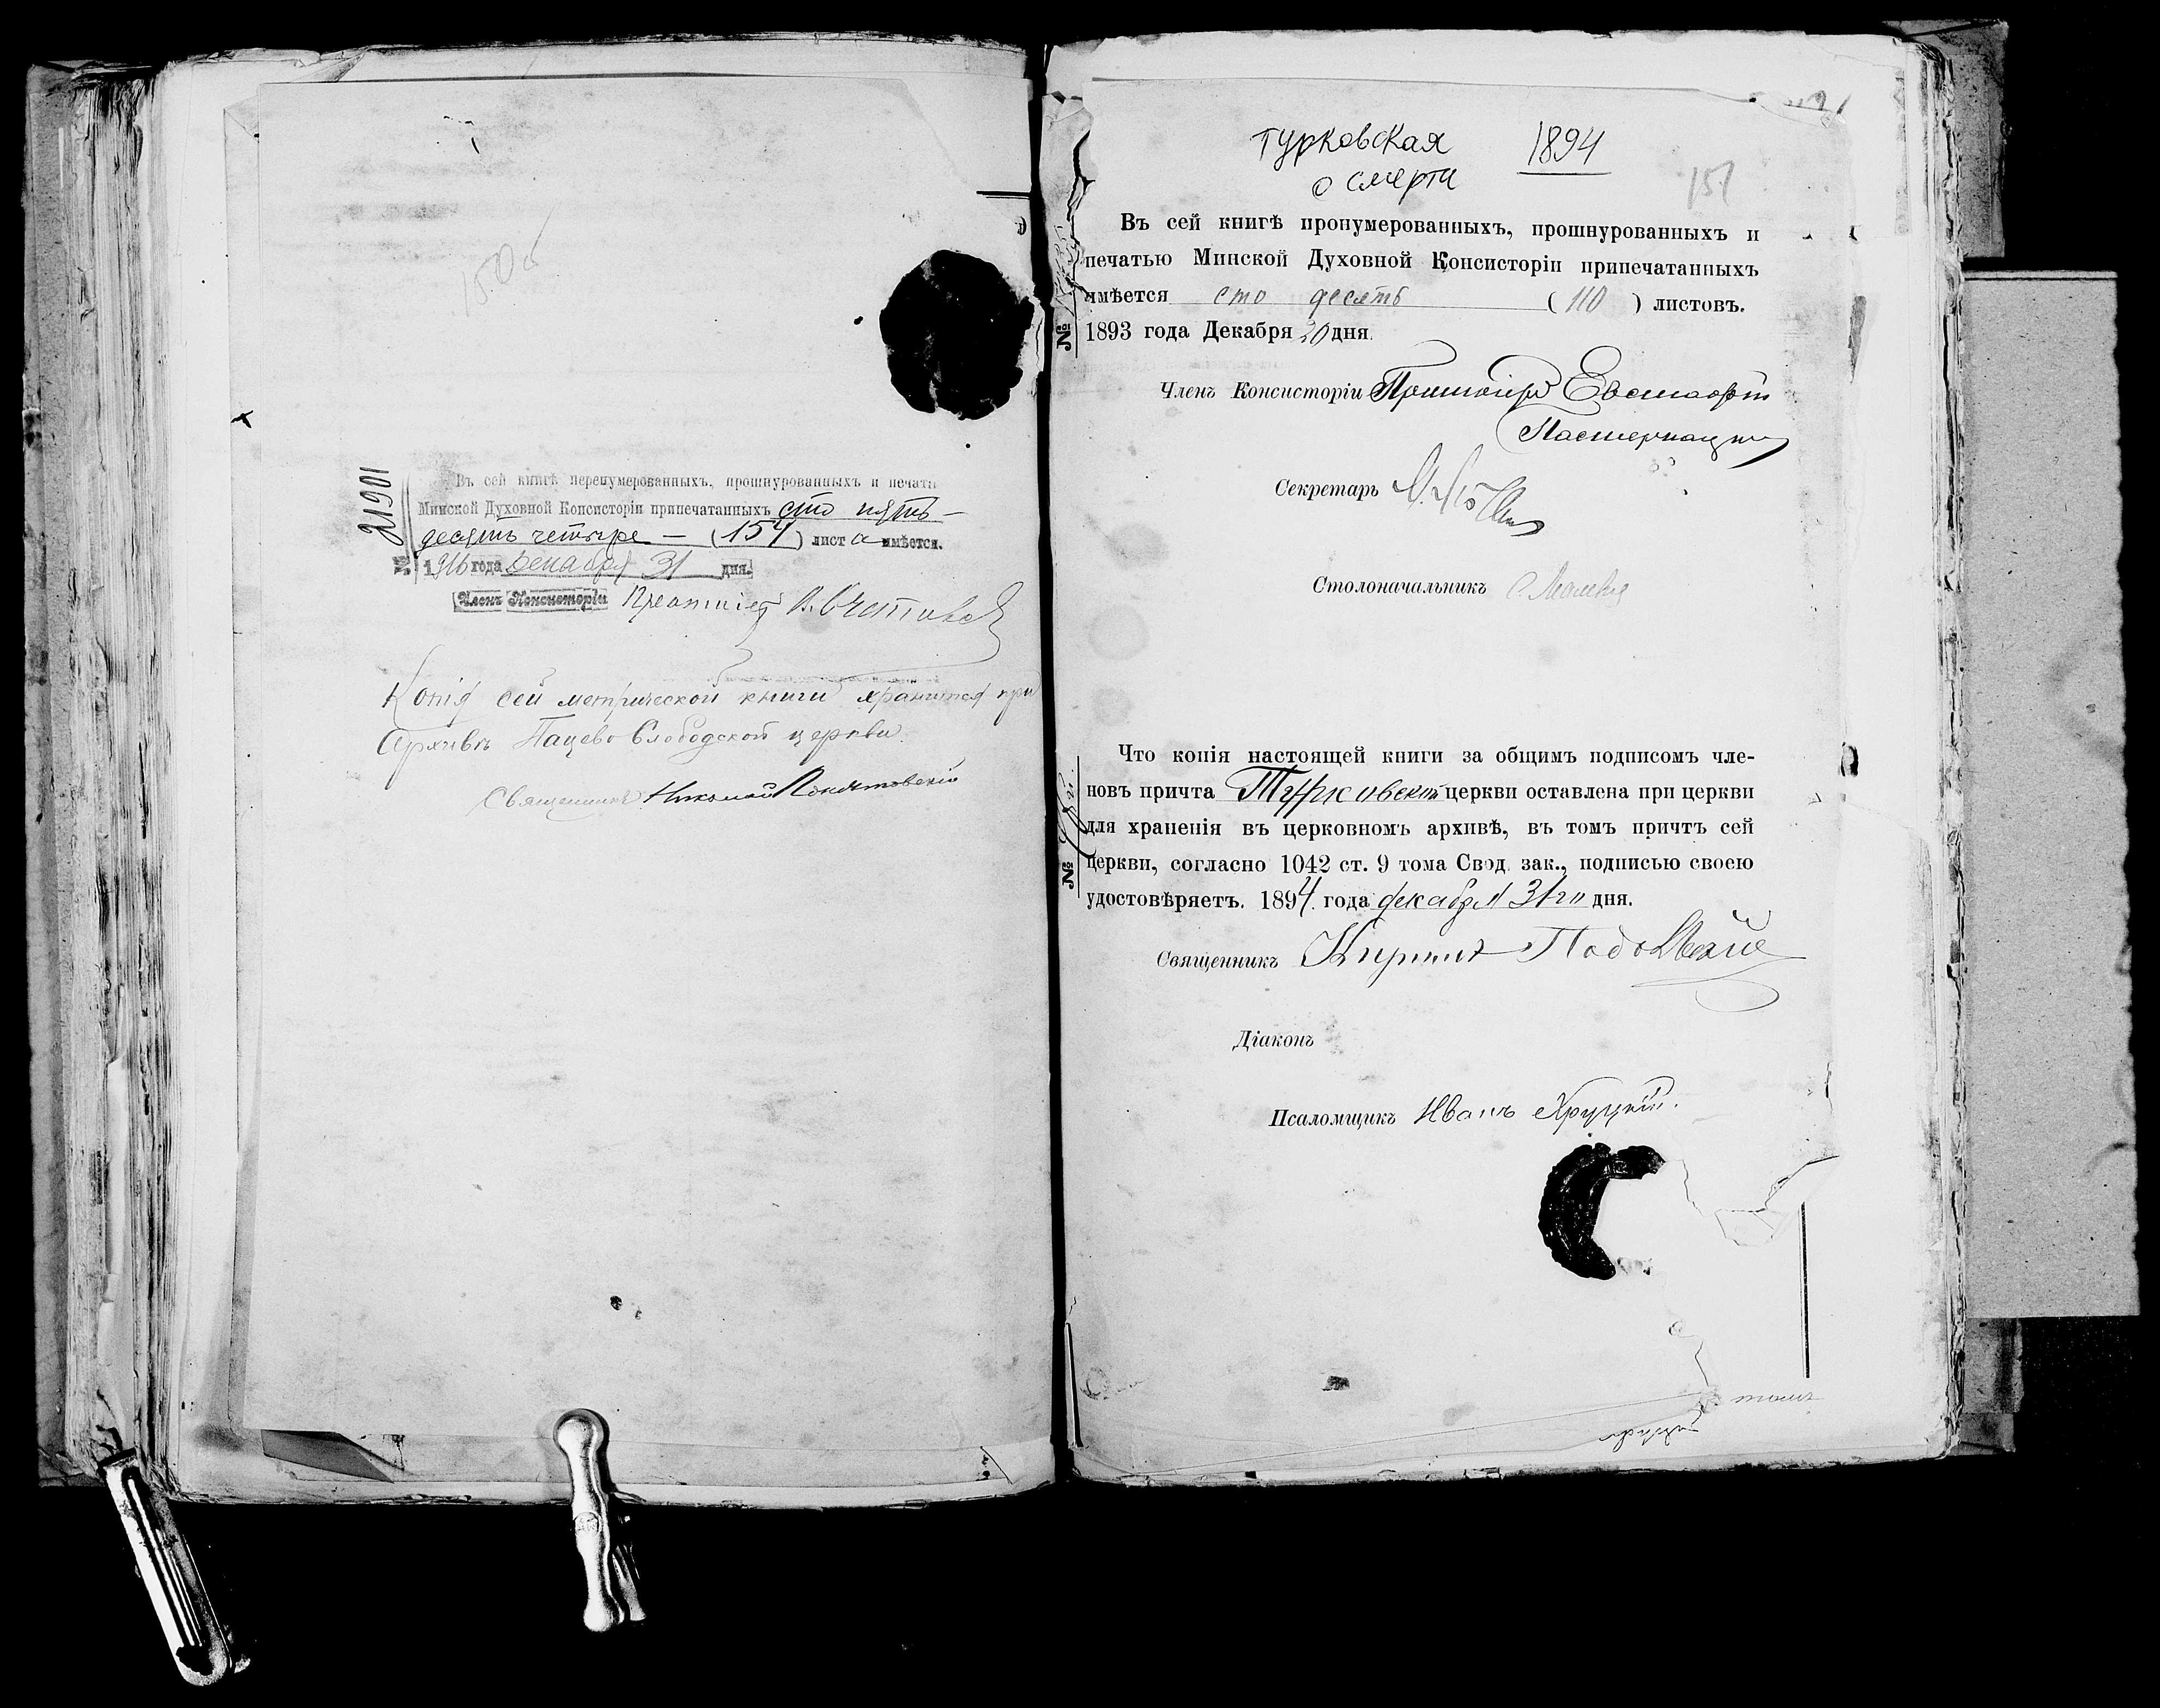 150 об
№ 21901
Въ сей книгѣ перенумерованныхъ, прошнурованныхъ и печатью
Минской Духовной Консисторіи припечатанныхъ сто пять-
десятъ четыре — (154) листа имѣется.
1916 года Декабря 31 дня.
Членъ Консисторіи Протоіерей В.
Копія сей метрической книги хранится при
Архивѣ Пацево Слободской церкви.
Священникъ Николай
Турковская 1894
о смерти
151
Въ сей книгѣ пронумерованныхъ, прошнурованныхъ и
печатью Минской Духовной Консисторіи припечатанныхъ
имѣется сто десять ( 110 ) листовъ.
1893 года Декабря 20 дня.
№
Членъ Консисторіи Протоіерей Евстафій
Пастернацкій
Секретарь
Столоначальникъ
Что копія настоящей книги за общимъ подписомъ чле-
новъ причта Турковской церкви оставлена при церкви
для храненія въ церковномъ архивѣ, въ томъ причтъ сей
церкви, согласно 1042 ст. 9 тома Свод. зак., подписью своею
удостовѣряетъ. 1894 года декабря 31го дня.
№
Священникъ Кириллъ
Діаконъ
Псаломщикъ Иванъ Хруцкій.